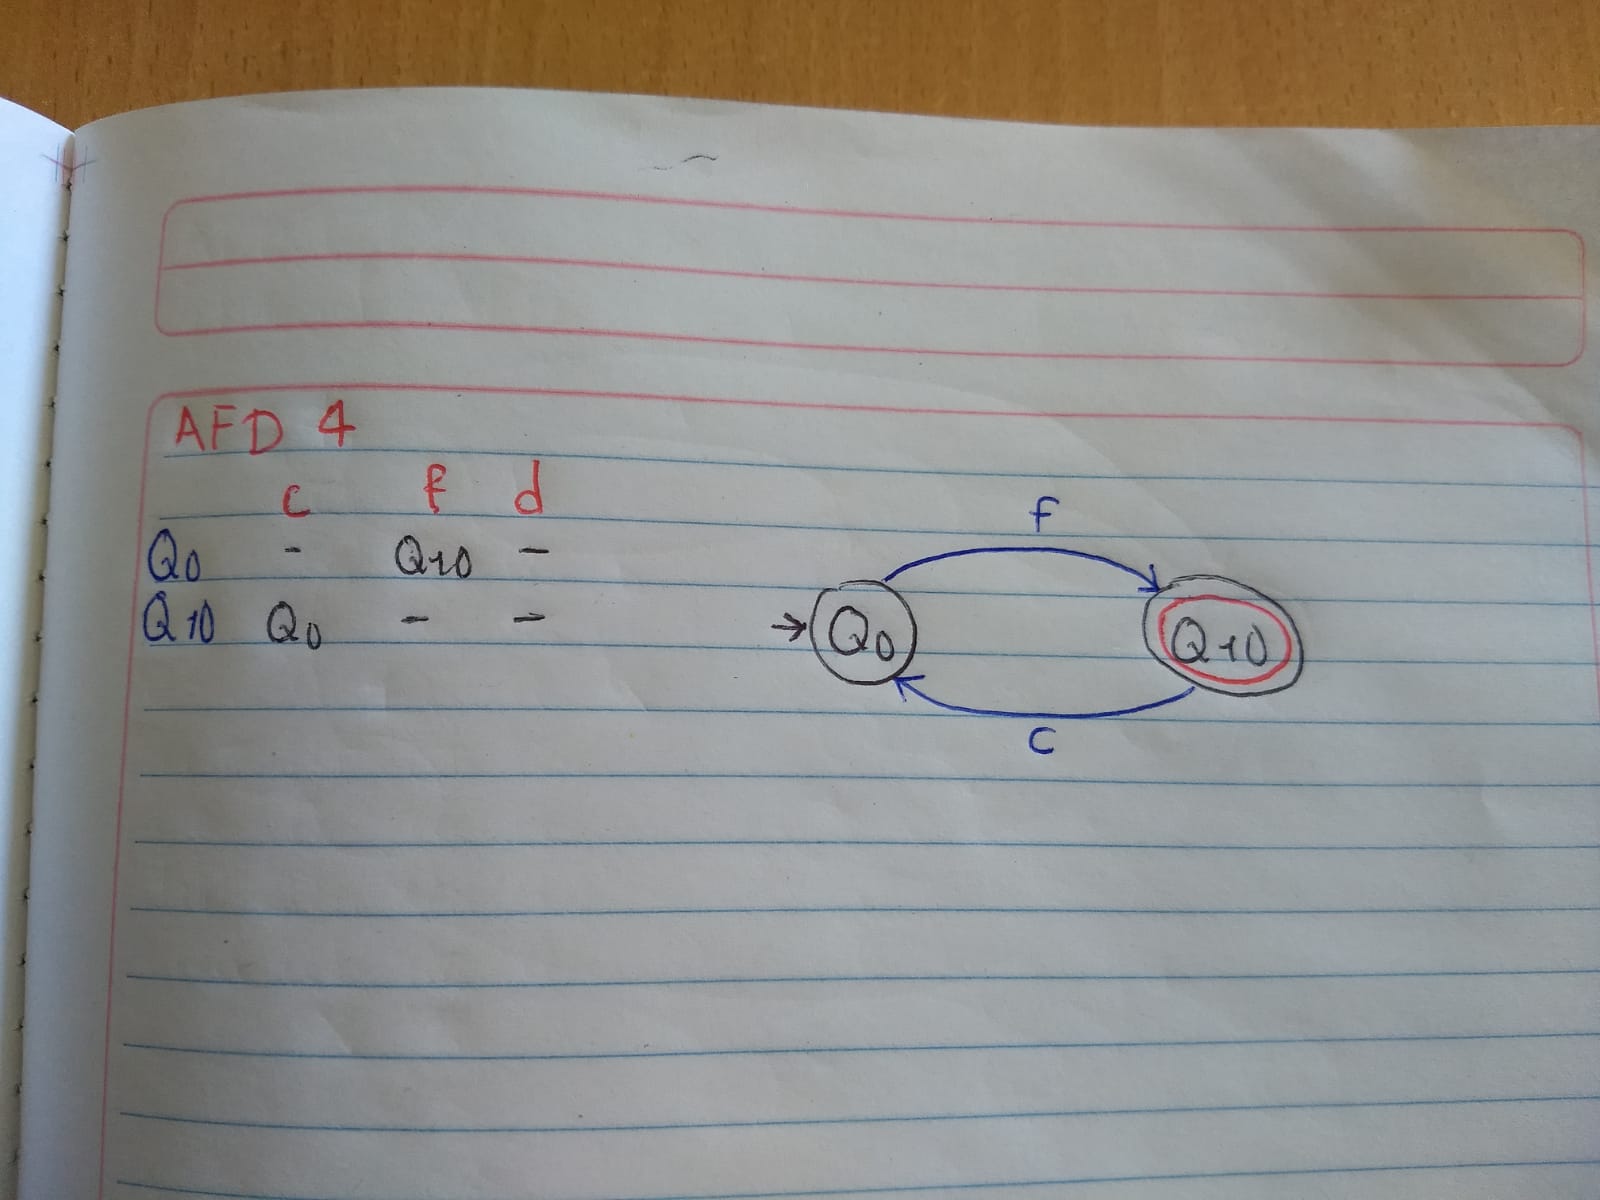 AFD 4
c f d
Q0 - Q10 -
Q10 Q0 - -
f
Q0 Q10
c